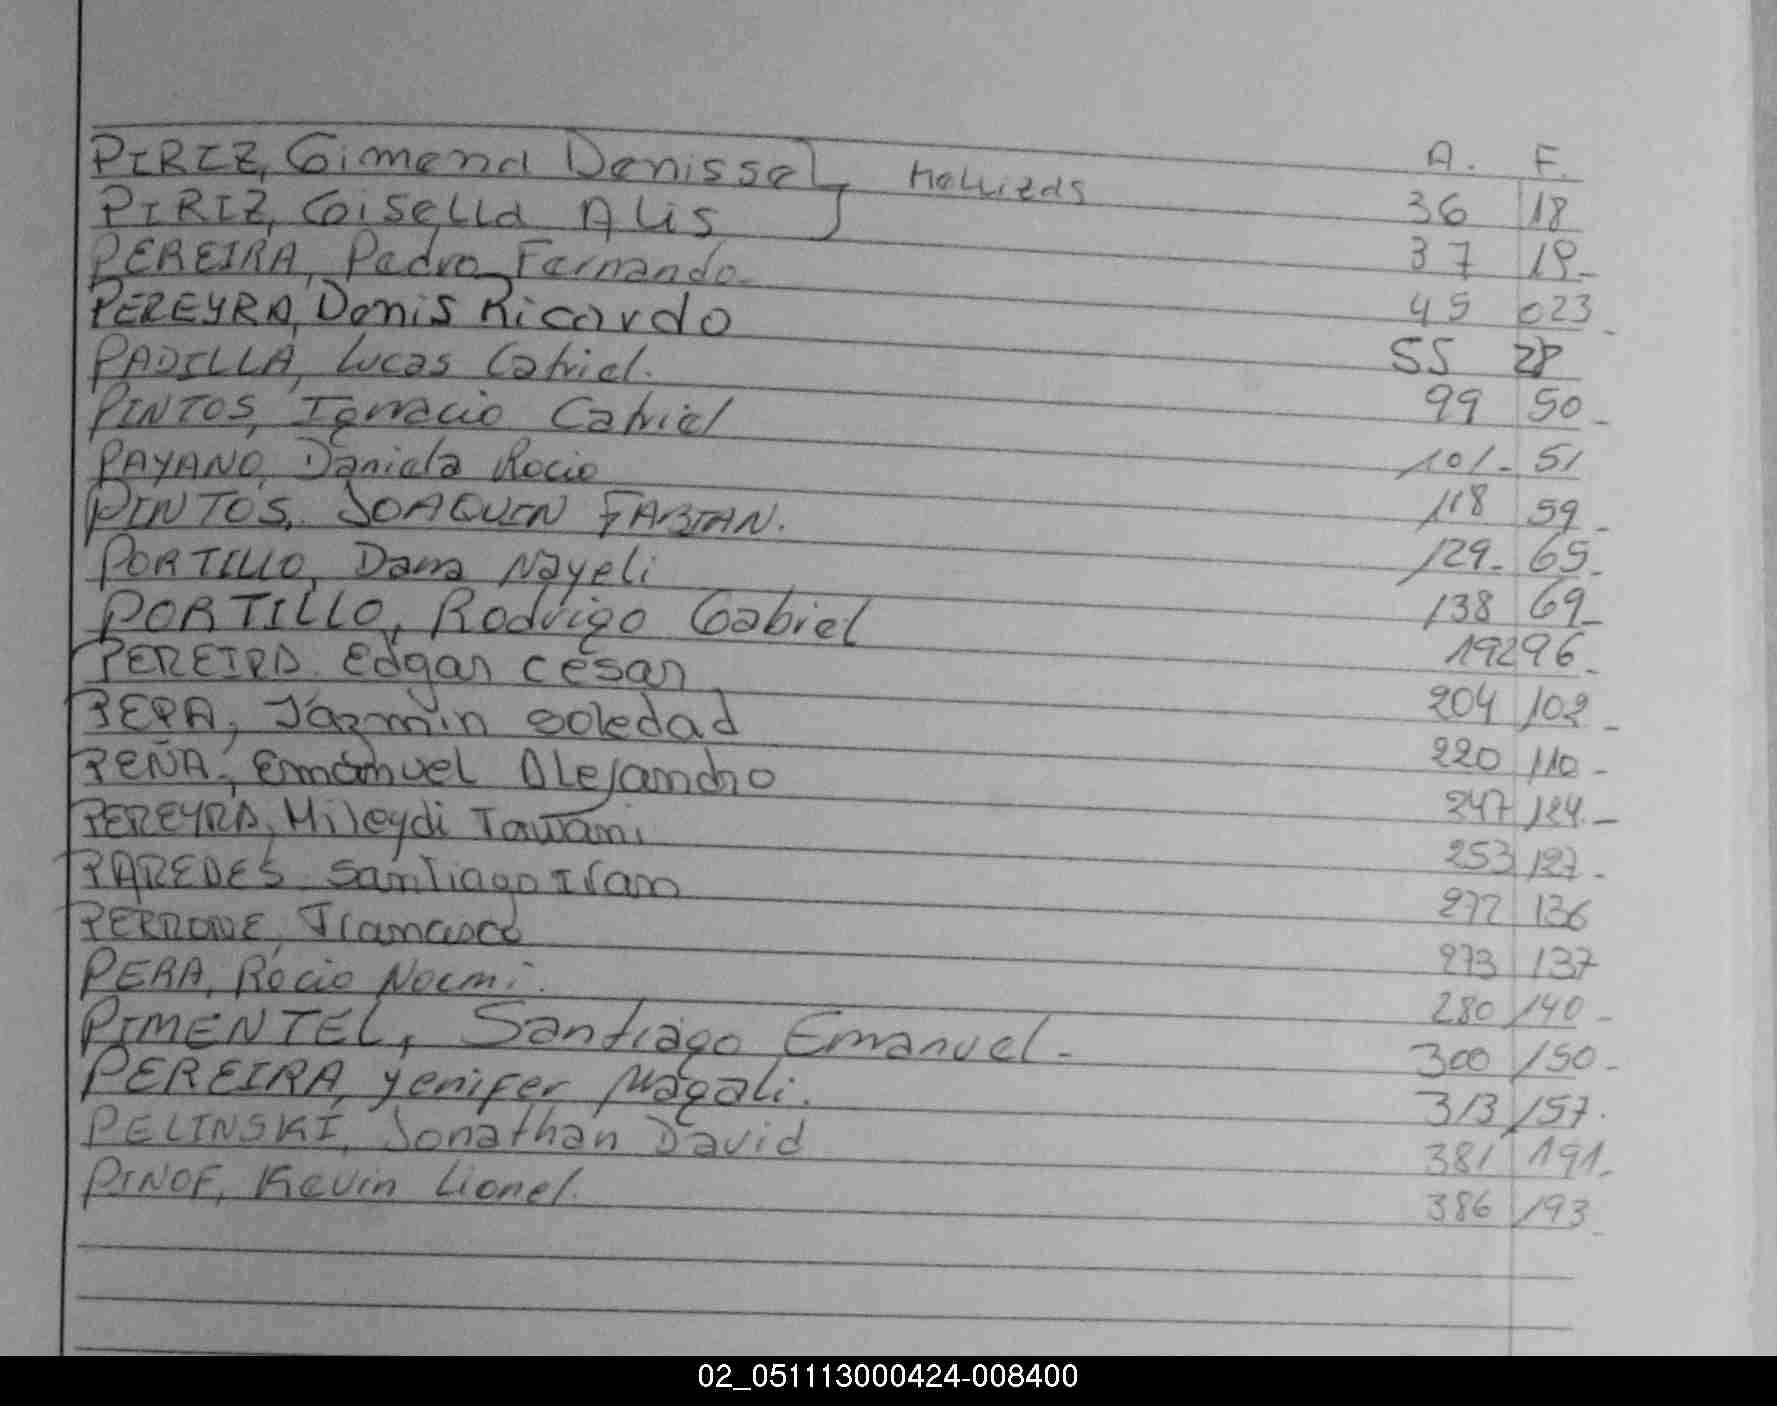 A. F.
PIRIZ, Gimena Denisse mellizas 36 18
PIRIZ, Gisella Alis 37 19-
PEREIRA, Pedro Fernando 45 023-
PEREYRA, Denis Ricardo 55 28
PADILLA, Lucas Gabriel. 99 50-
PINTOS, Ignacio Gabriel 101- 51
PAYANO, Daniela Rocio 118 59-
PINTOS, JOAQUIN FABIAN. 129- 65-
PORTILLO, Dana Nayeli 138 69-
PORTILLO, Rodrigo Gabriel 192 96-
PEREIRA Edgar césar 204 102-
PERA, Jazmin soledad 220 110-
PEÑA, Emanuel Alejandro 247 124-
PEREYRA, Mileydi 253 127-
PAREDES Santiago 272 136
PERRONE, Francisco 273 137
PERA, Rocio Noemi. 280 140-
PIMENTEL, Santiago Emanuel- 300 150-
PEREIRA, Yenifer Magali. 313 157.
PELINSKI, Jonathan David 381 191-
Kevin Lionel. 386 193-
02_051113000424-008400